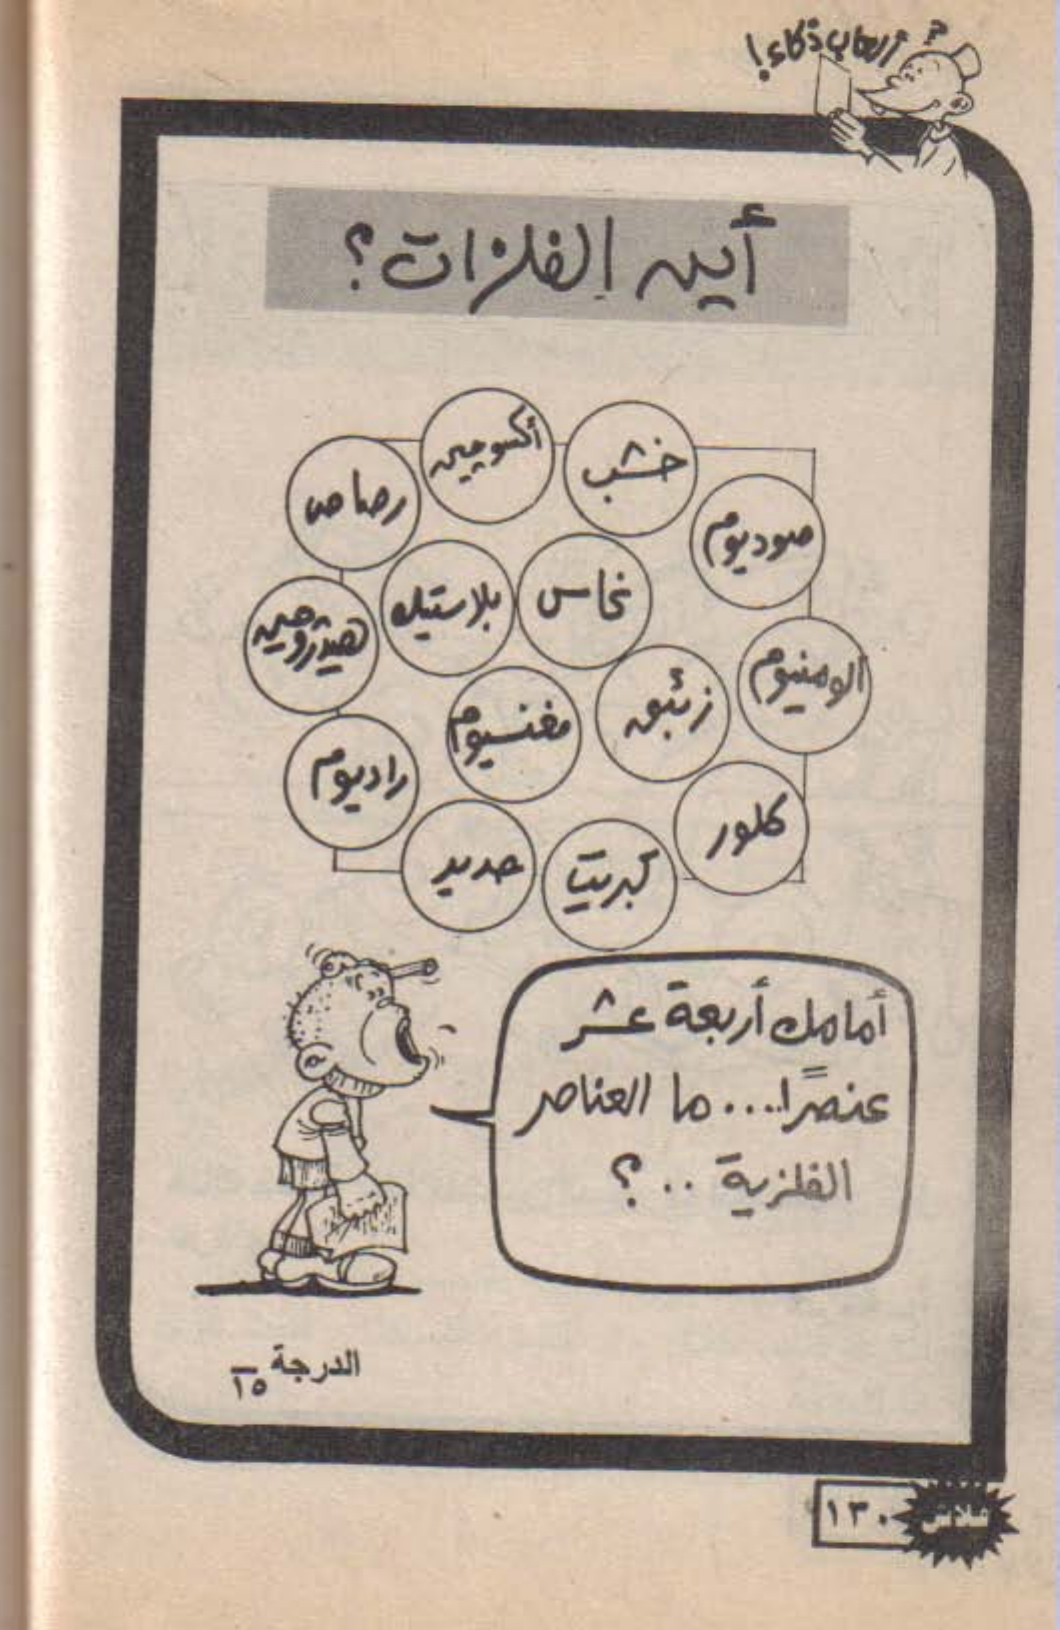 ألعاب ذكاء!
أين الفلزات؟
أكسوجين
خشب
رصاص
صوديوم
نحاس
بلاستيك
هيدروجين
الومنيوم
زئبق
مغنسيوم
راديوم
كلور
حديد
كبريت
أمامك أربعة عشر
عنصرًا.... ما العناصر
الفلزية ..؟
الدرجة ١٥
١٣٠ فلاش